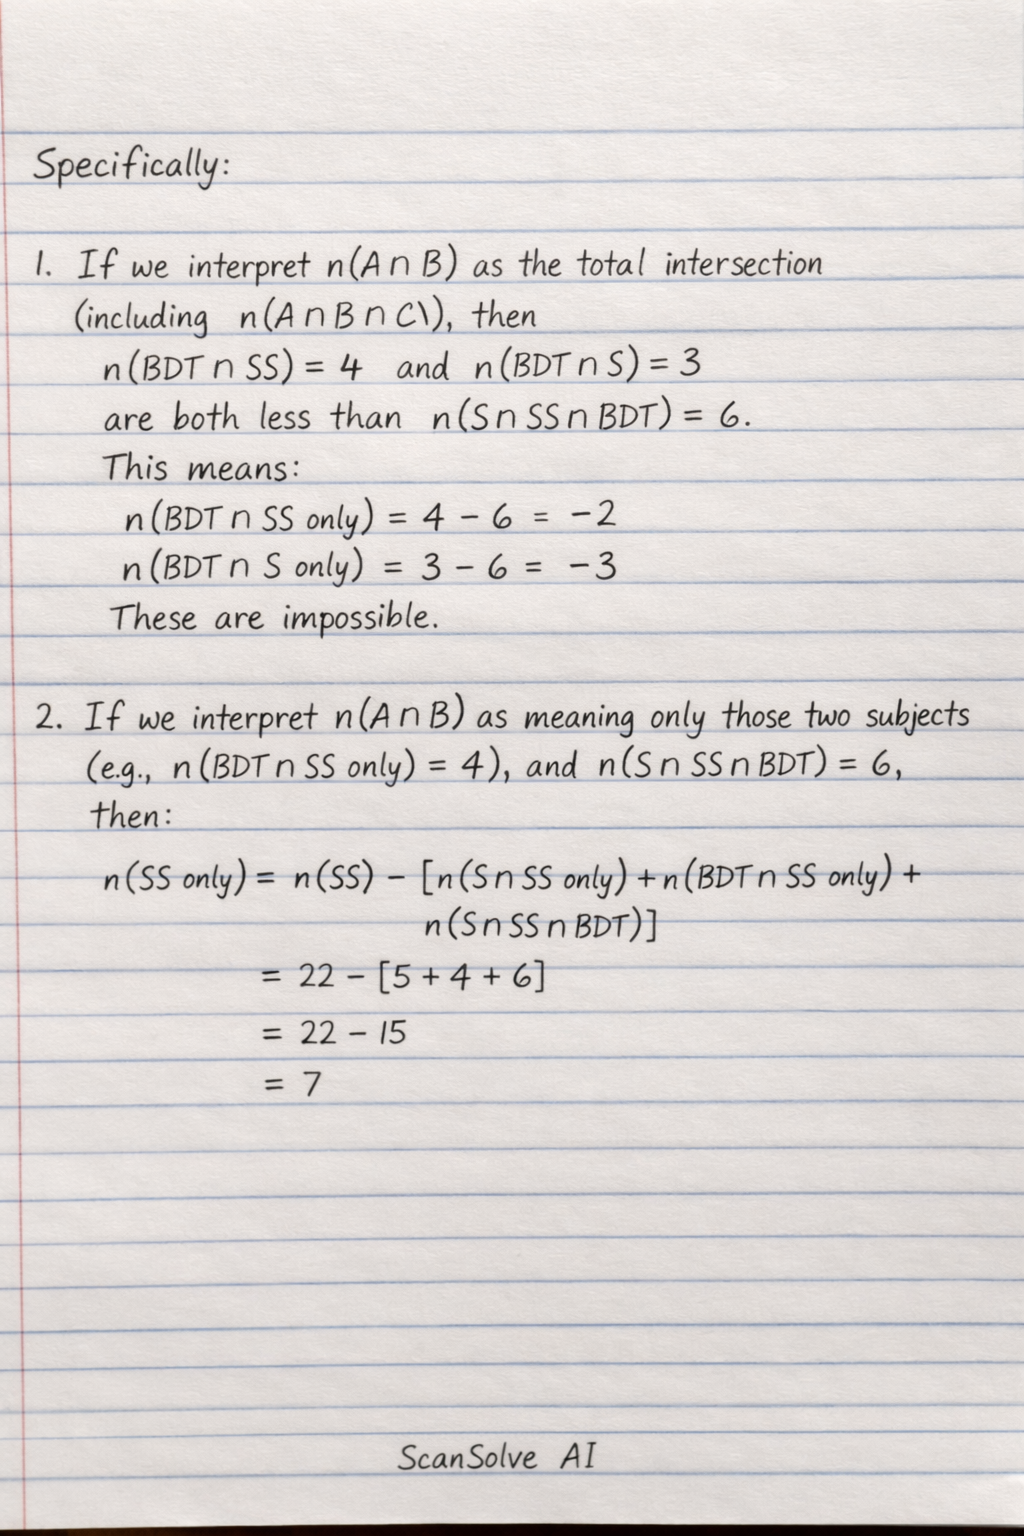 Specifically:
1. If we interpret n(A ∩ B) as the total intersection
(including n(A ∩ B ∩ C\), then
n(BDT ∩ SS) = 4 and n(BDT ∩ S) = 3
are both less than n(S ∩ SS ∩ BDT) = 6.
This means:
n(BDT ∩ SS only) = 4 - 6 = -2
n(BDT ∩ S only) = 3 - 6 = -3
These are impossible.
2. If we interpret n(A ∩ B) as meaning only those two subjects
(e.g., n(BDT ∩ SS only) = 4), and n(S ∩ SS ∩ BDT) = 6,
then:
n(SS only) = n(SS) - [n(S ∩ SS only) + n(BDT ∩ SS only) +
n(S ∩ SS ∩ BDT)]
= 22 - [5 + 4 + 6]
= 22 - 15
= 7
ScanSolve AI